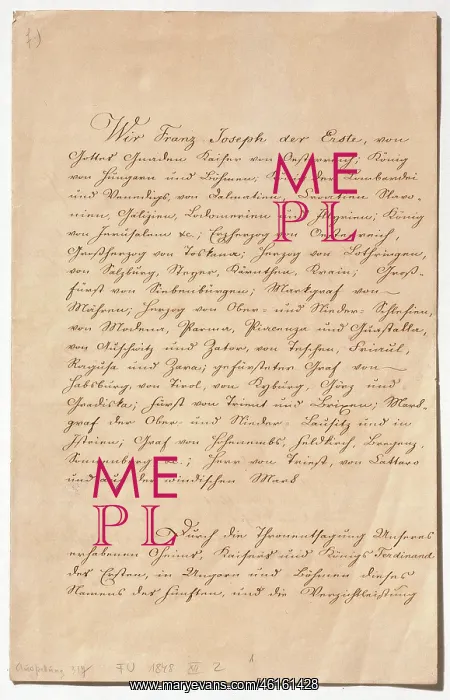 1)
Wir Franz Joseph der Erste, von
Gottes Gnaden Kaiser von Oesterreich; König
von Hungarn und Böhmen, König der Lombardei
und Venedigs, von Dalmatien, Croatien Slavo-
nien, Galizien, Lodomerien und Illyrien; König
von Jerusalem &c.; Erzherzog von Oesterreich,
Großherzog von Toskana; Herzog von Lothringen,
von Salzburg, Steyer, Kärnthen, Krain; Groß-
fürst von Siebenbürgen; Markgraf von
Mähren; Herzog von Ober- und Nieder- Schlesien,
von Modena, Parma, Piacenza und Guastalla,
von Auschwitz und Zator, von Teschen, Friaul,
Ragusa und Zara; gefürsteter Graf von
Habsburg, von Tirol, von Kyburg, Görz und
Gradiska; Fürst von Trient und Brixen; Mark-
graf der Ober- und Nieder- Lausitz und in
Istrien; Graf von Hohenembs, Feldkirch, Bregenz,
Sonnenberg &c.; Herr von Triest, von Cattaro
und auf der windischen Mark
Durch die Thronentsagung Unseres
erhabenen Oheims, Kaisers und Königs Ferdinand
des Ersten, in Ungarn und Böhmen dieses
Namens des Fünften, und die Verzichtleistung
FU 1848 XII 2
1.
ME
PL
ME
PL
www.maryevans.com/46161428